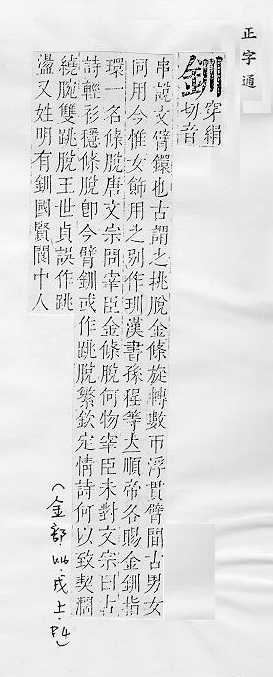 正字通
釧 穿絹
切音
串說文臂鐶也古謂之挑脫金條旋轉數帀浮貫臂間古男女
同用今惟女飾用之別作玔漢書孫程等立順帝各賜金釧指
環一名條脫唐文宗問宰臣金條脫何物宰臣未對文宗曰古
詩輕衫穩條脫卽今臂釧或作跳脫繁欽定情詩何以致契濶
繞腕雙跳脫王世貞誤作跳
盪又姓明有釧國賢閬中人
(金部·戌上·P4)